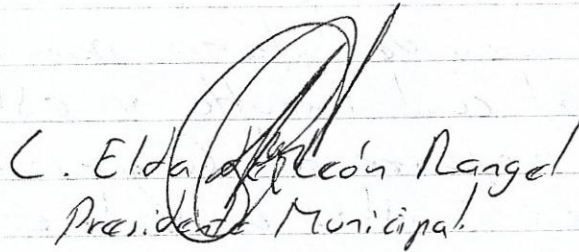 C. Elda de León Rangel
Presidente Municipal.